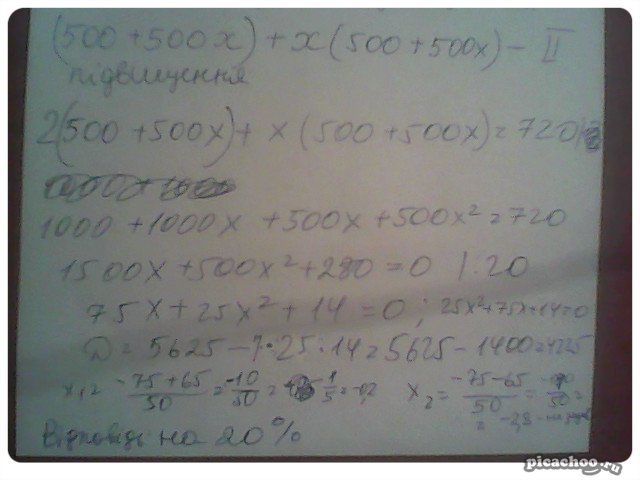 (500 + 500x) + x (500 + 500x) - II
підвищення
2(500 + 500x) + x (500 + 500x) = 720
1000 + 1000x + 500x + 500x² = 720
1500x + 500x² + 280 = 0 | : 20
75x + 25x² + 14 = 0 ; 25x² + 75x + 14 = 0
D = 5625 - 4·25·14 = 5625 - 1400 = 4225
x₁ = -75 + 65 / 50 = -10 / 50 = -1 / 5 = -0,2 x₂ = -75 - 65 / 50 =
= -2,8 -
Відповідь на 20%
picachoo.ru